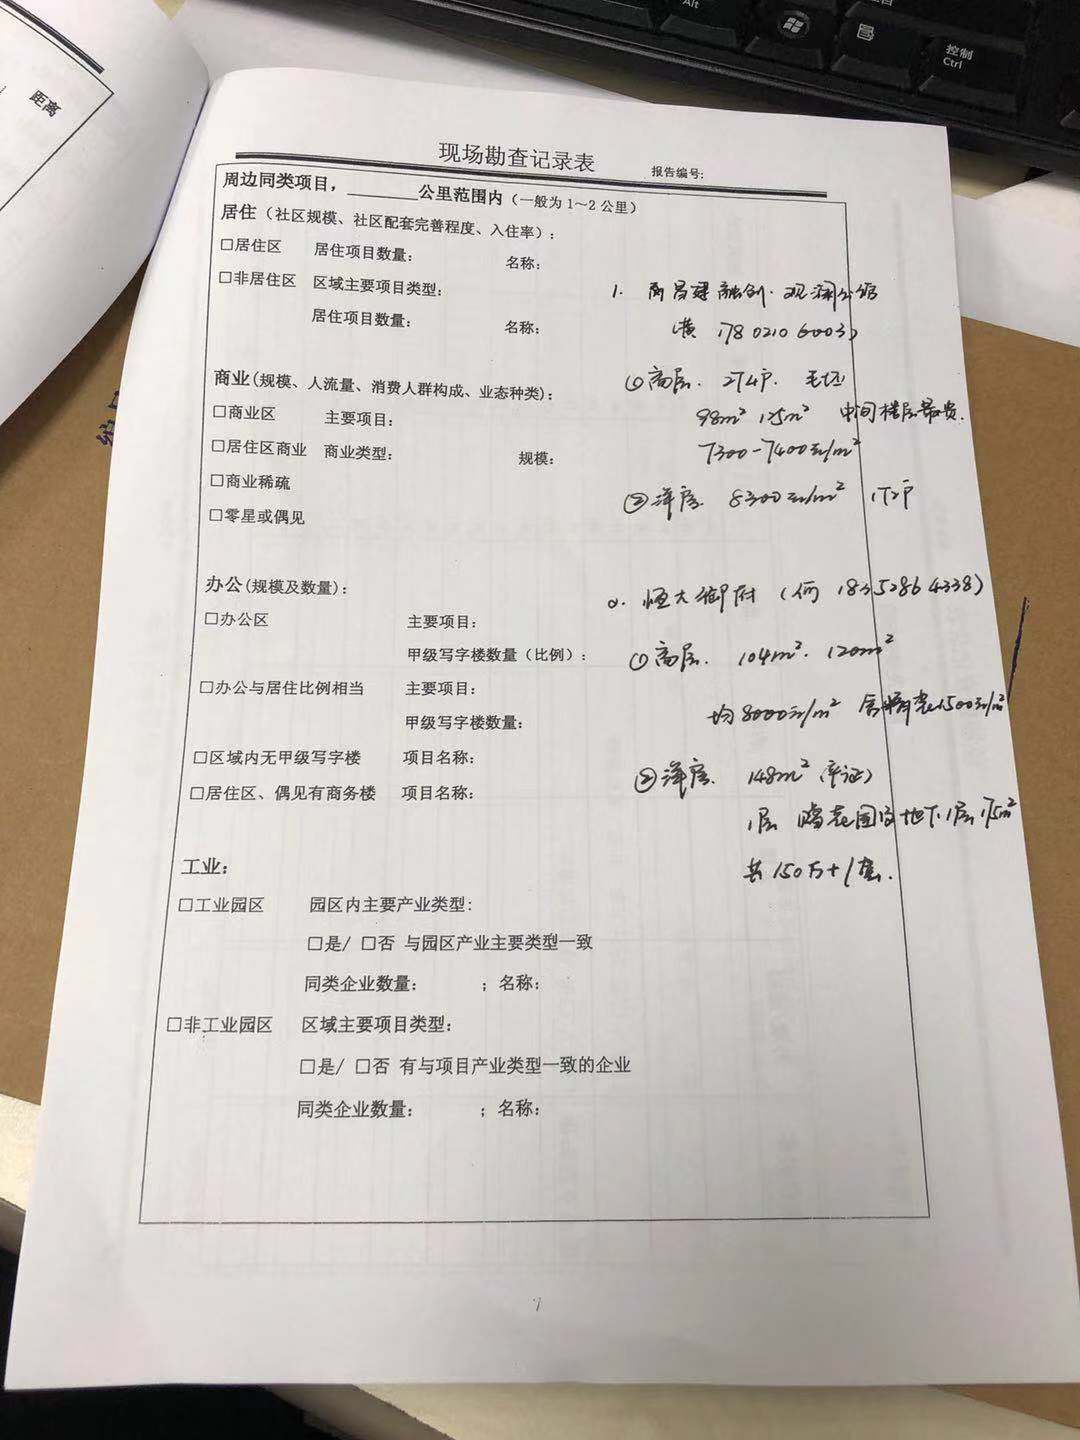 距离
Alt
控制
Ctrl
现场勘查记录表
报告编号:
周边同类项目，______公里范围内（一般为 1～2 公里）
居住（社区规模、社区配套完善程度、入住率）:
□居住区 居住项目数量: 名称:
□非居住区 区域主要项目类型:
1. 融创·观澜公馆
居住项目数量: 名称:
(黄
商业(规模、人流量、消费人群构成、业态种类):
①高层. 2T4户. 毛坯
□商业区 主要项目:
98m² 125m² 中间楼层最贵.
□居住区商业 商业类型: 规模:
7300-7400元/m²
□商业稀疏
②洋房. 8300元/m² 1T2户
□零星或偶见
办公(规模及数量):
恒大御府 (何 18352864338)
□办公区 主要项目:
甲级写字楼数量（比例）:
①高层. 104m². 120m²
□办公与居住比例相当 主要项目:
甲级写字楼数量:
均8000元/m² 含精装1500元/m²
□区域内无甲级写字楼 项目名称:
②洋房. 148m²
□居住区、偶见有商务楼 项目名称:
1层 花园 地下1层175m²
工业:
共150万+1层.
□工业园区 园区内主要产业类型:
□是/ □否 与园区产业主要类型一致
同类企业数量: ；名称:
□非工业园区 区域主要项目类型:
□是/ □否 有与项目产业类型一致的企业
同类企业数量: ；名称:
7